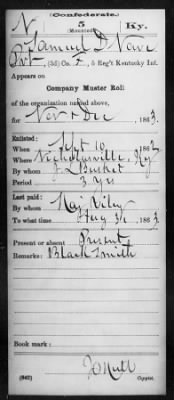 (Confederate.)
N 5 Ky.
(Mounted)
Samuel D Nave
Pvt, (3d) Co. F, 5 Reg't Kentucky Inf.
Appears on
Company Muster Roll
of the organization named above,
for Nov & Dec, 1863.
Enlisted:
When Sept 10, 1862
Where Nicholasville, Ky
By whom
Period 3 yrs
Last paid:
By whom Maj. Viley
To what time Aug 31, 1863
Present or absent Present
Remarks: Blacksmith
Book mark:
(642) Copyist.